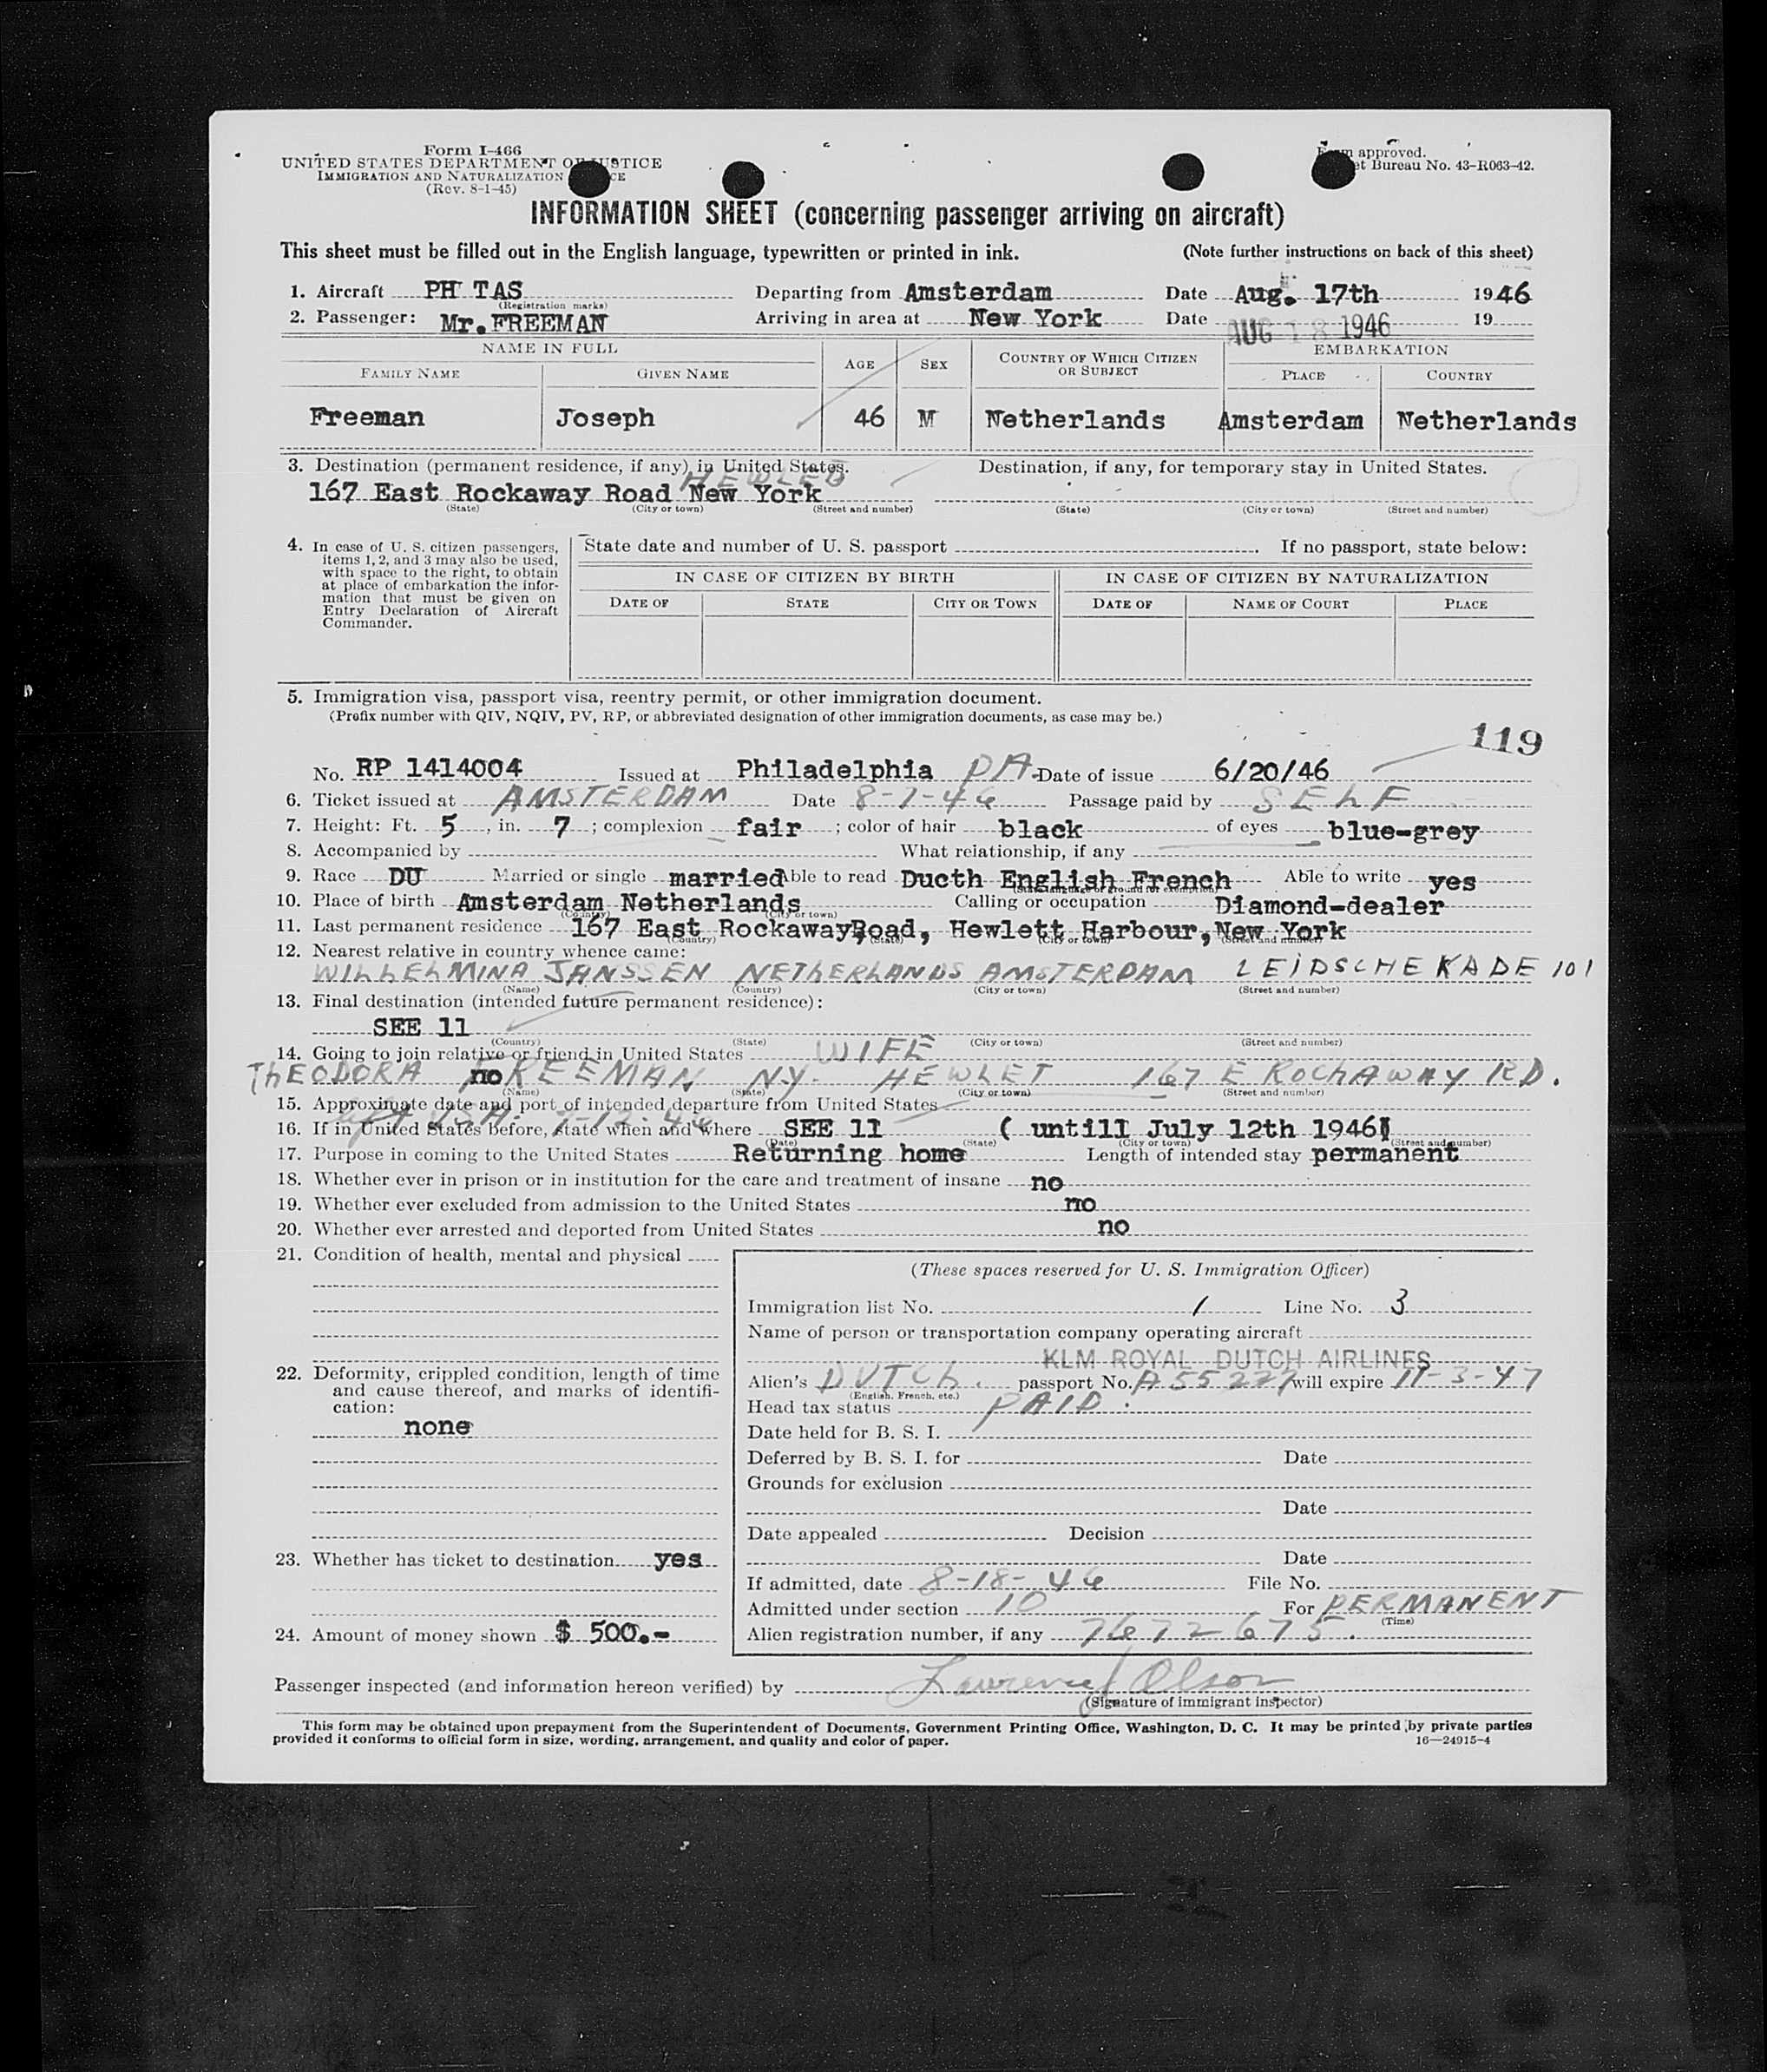 Form I-466
UNITED STATES DEPARTMENT OF JUSTICE
IMMIGRATION AND NATURALIZATION
(Rev. 8-1-45)
approved.
Bureau No. 43-R063-42.
INFORMATION SHEET (concerning passenger arriving on aircraft)
This sheet must be filled out in the English language, typewritten or printed in ink. (Note further instructions on back of this sheet)
1. Aircraft PH TAS Departing from Amsterdam Date Aug. 17th 1946
(Registration marks)
2. Passenger: Mr. FREEMAN Arriving in area at New York Date AUG 18 1946 19
NAME IN FULL AGE SEX COUNTRY OF WHICH CITIZEN OR SUBJECT EMBARKATION
FAMILY NAME GIVEN NAME PLACE COUNTRY
Freeman Joseph 46 M Netherlands Amsterdam Netherlands
3. Destination (permanent residence, if any) in United States. Destination, if any, for temporary stay in United States.
167 East Rockaway Road New York
(State) (City or town) (Street and number) (State) (City or town) (Street and number)
4. In case of U. S. citizen passengers, items 1, 2, and 3 may also be used, with space to the right, to obtain at place of embarkation the information that must be given on Entry Declaration of Aircraft Commander.
State date and number of U. S. passport . If no passport, state below:
IN CASE OF CITIZEN BY BIRTH IN CASE OF CITIZEN BY NATURALIZATION
DATE OF STATE CITY OR TOWN DATE OF NAME OF COURT PLACE
5. Immigration visa, passport visa, reentry permit, or other immigration document.
(Prefix number with QIV, NQIV, PV, RP, or abbreviated designation of other immigration documents, as case may be.)
119
No. RP 1414004 Issued at Philadelphia PA. Date of issue 6/20/46
6. Ticket issued at AMSTERDAM Date 8-1-46 Passage paid by SELF
7. Height: Ft. 5, in. 7; complexion fair; color of hair black of eyes blue-grey
8. Accompanied by What relationship, if any
9. Race DU Married or single married Able to read Ducth English French Able to write yes
(State language or ground for exemption)
10. Place of birth Amsterdam Netherlands Calling or occupation Diamond-dealer
(Country) (City or town)
11. Last permanent residence 167 East Rockaway Road, Hewlett Harbour, New York
(Country) (State) (City or town) (Street and number)
12. Nearest relative in country whence came:
WILHELMINA JANSSEN NETHERLANDS AMSTERDAM LEIDSCHEKADE 101
(Name) (Country) (City or town) (Street and number)
13. Final destination (intended future permanent residence):
SEE 11
(Country) (State) (City or town) (Street and number)
14. Going to join relative or friend in United States WIFE
THEODORA no FREEMAN N.Y. HEWLET 167 E ROCKAWAY RD.
(Name) (State) (City or town) (Street and number)
15. Approximate date and port of intended departure from United States
USA. 7-12-46
16. If in United States before, state when and where SEE 11 ( untill July 12th 1946)
(Date) (State) (City or town) (Street and number)
17. Purpose in coming to the United States Returning home Length of intended stay permanent
18. Whether ever in prison or in institution for the care and treatment of insane no
19. Whether ever excluded from admission to the United States no
20. Whether ever arrested and deported from United States no
21. Condition of health, mental and physical
22. Deformity, crippled condition, length of time and cause thereof, and marks of identification:
none
23. Whether has ticket to destination yes
24. Amount of money shown $ 500.-
(These spaces reserved for U. S. Immigration Officer)
Immigration list No. 1 Line No. 3
Name of person or transportation company operating aircraft
KLM ROYAL DUTCH AIRLINES
Alien's DUTCH. passport No. A 55227 will expire 11-3-47
(English, French, etc.)
Head tax status PAID.
Date held for B. S. I.
Deferred by B. S. I. for Date
Grounds for exclusion
Date
Date appealed Decision
Date
If admitted, date 8-18-46 File No.
Admitted under section 10 For PERMANENT
(Time)
Alien registration number, if any 7672675.
Passenger inspected (and information hereon verified) by Lawrence J Olson
(Signature of immigrant inspector)
This form may be obtained upon prepayment from the Superintendent of Documents, Government Printing Office, Washington, D. C. It may be printed by private parties
provided it conforms to official form in size, wording, arrangement, and quality and color of paper. 16—24915-4